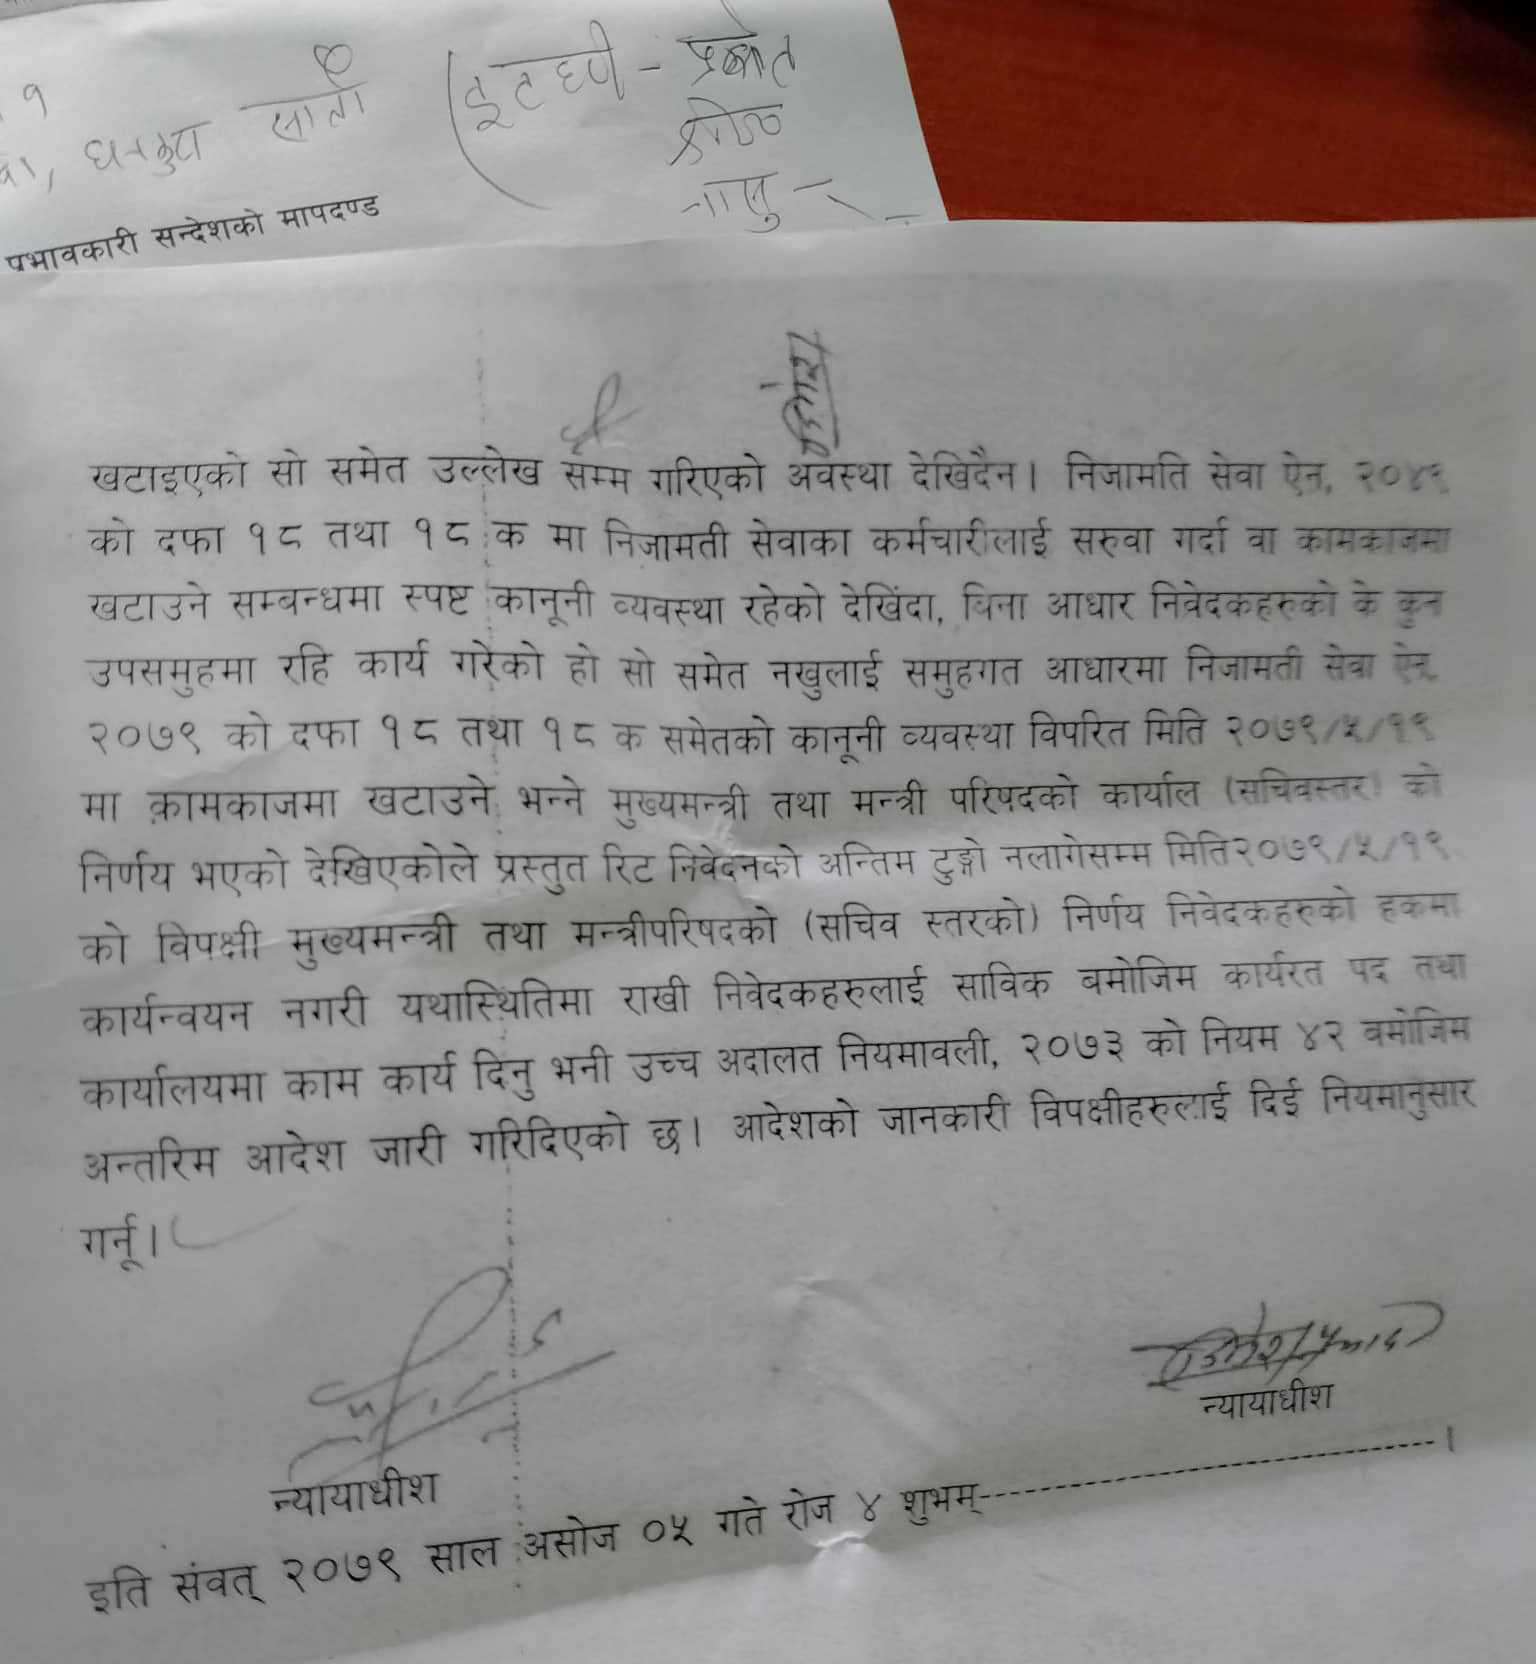 १
धनकुटा सातौं (इटहरी -
प्रभावकारी सन्देशको मापदण्ड
खटाइएको सो समेत उल्लेख सम्म गरिएको अवस्था देखिदैन। निजामति सेवा ऐन, २०४९
को दफा १८ तथा १८ क मा निजामती सेवाका कर्मचारीलाई सरुवा गर्दा वा कामकाजमा
खटाउने सम्बन्धमा स्पष्ट कानूनी व्यवस्था रहेको देखिंदा, विना आधार निवेदकहरुको के कुन
उपसमुहमा रहि कार्य गरेको हो सो समेत नखुलाई समुहगत आधारमा निजामती सेवा ऐन
२०७९ को दफा १८ तथा १८ क समेतको कानूनी व्यवस्था विपरित मिति २०७९/५/१९
मा कामकाजमा खटाउने भन्ने मुख्यमन्त्री तथा मन्त्री परिषदको कार्याल (सचिवस्तर) को
निर्णय भएको देखिएकोले प्रस्तुत रिट निवेदनको अन्तिम टुङ्गो नलागेसम्म मिति२०७९/५/१९
को विपक्षी मुख्यमन्त्री तथा मन्त्रीपरिषदको (सचिव स्तरको) निर्णय निवेदकहरुको हकमा
कार्यन्वयन नगरी यथास्थितिमा राखी निवेदकहरुलाई साविक बमोजिम कार्यरत पद तथा
कार्यालयमा काम कार्य दिनु भनी उच्च अदालत नियमावली, २०७३ को नियम ४२ बमोजिम
अन्तरिम आदेश जारी गरिदिएको छ। आदेशको जानकारी विपक्षीहरुलाई दिई नियमानुसार
गर्नू।
न्यायाधीश
न्यायाधीश
इति संवत् २०७९ साल असोज ०५ गते रोज ४ शुभम्-----------------------------------।